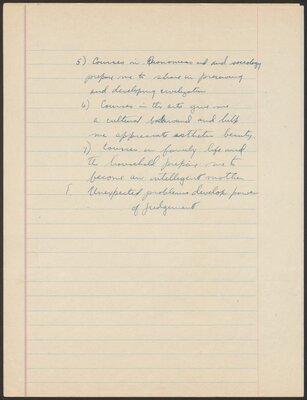 5) Courses in Economics and sociology
prepare me to share in preserving
and developing civilization
6) Courses in the arts give me
a cultural background and help
me appreciate esthetic beauty.
7) Courses in family life and
the household prepare me to
become an intelligent mother
Unexpected problems develop power
of judgement